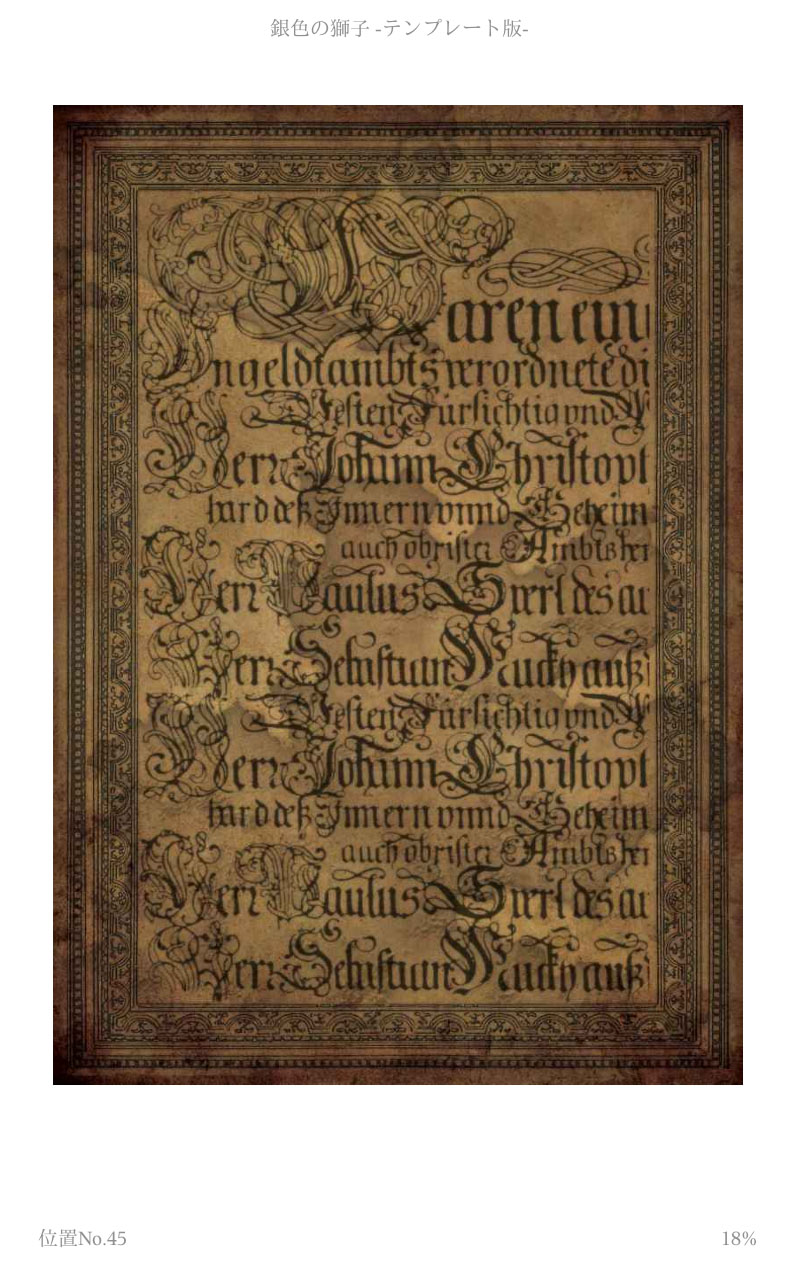 銀色の獅子 -テンプレート版-
aren
ngeldtambts verordnete di
Vesten Fürsichtig vnd W
Herr Johann Christoph
hard deß Innern vnnd Geheim
auch obrister Ambtsher
Herr Paulus des au
Herr Sebastian auß
Vesten Fürsichtig vnd W
Herr Johann Christoph
hard deß Innern vnnd Geheim
auch obrister Ambtsher
Herr Paulus des au
Herr Sebastian auß
位置No.45
18%